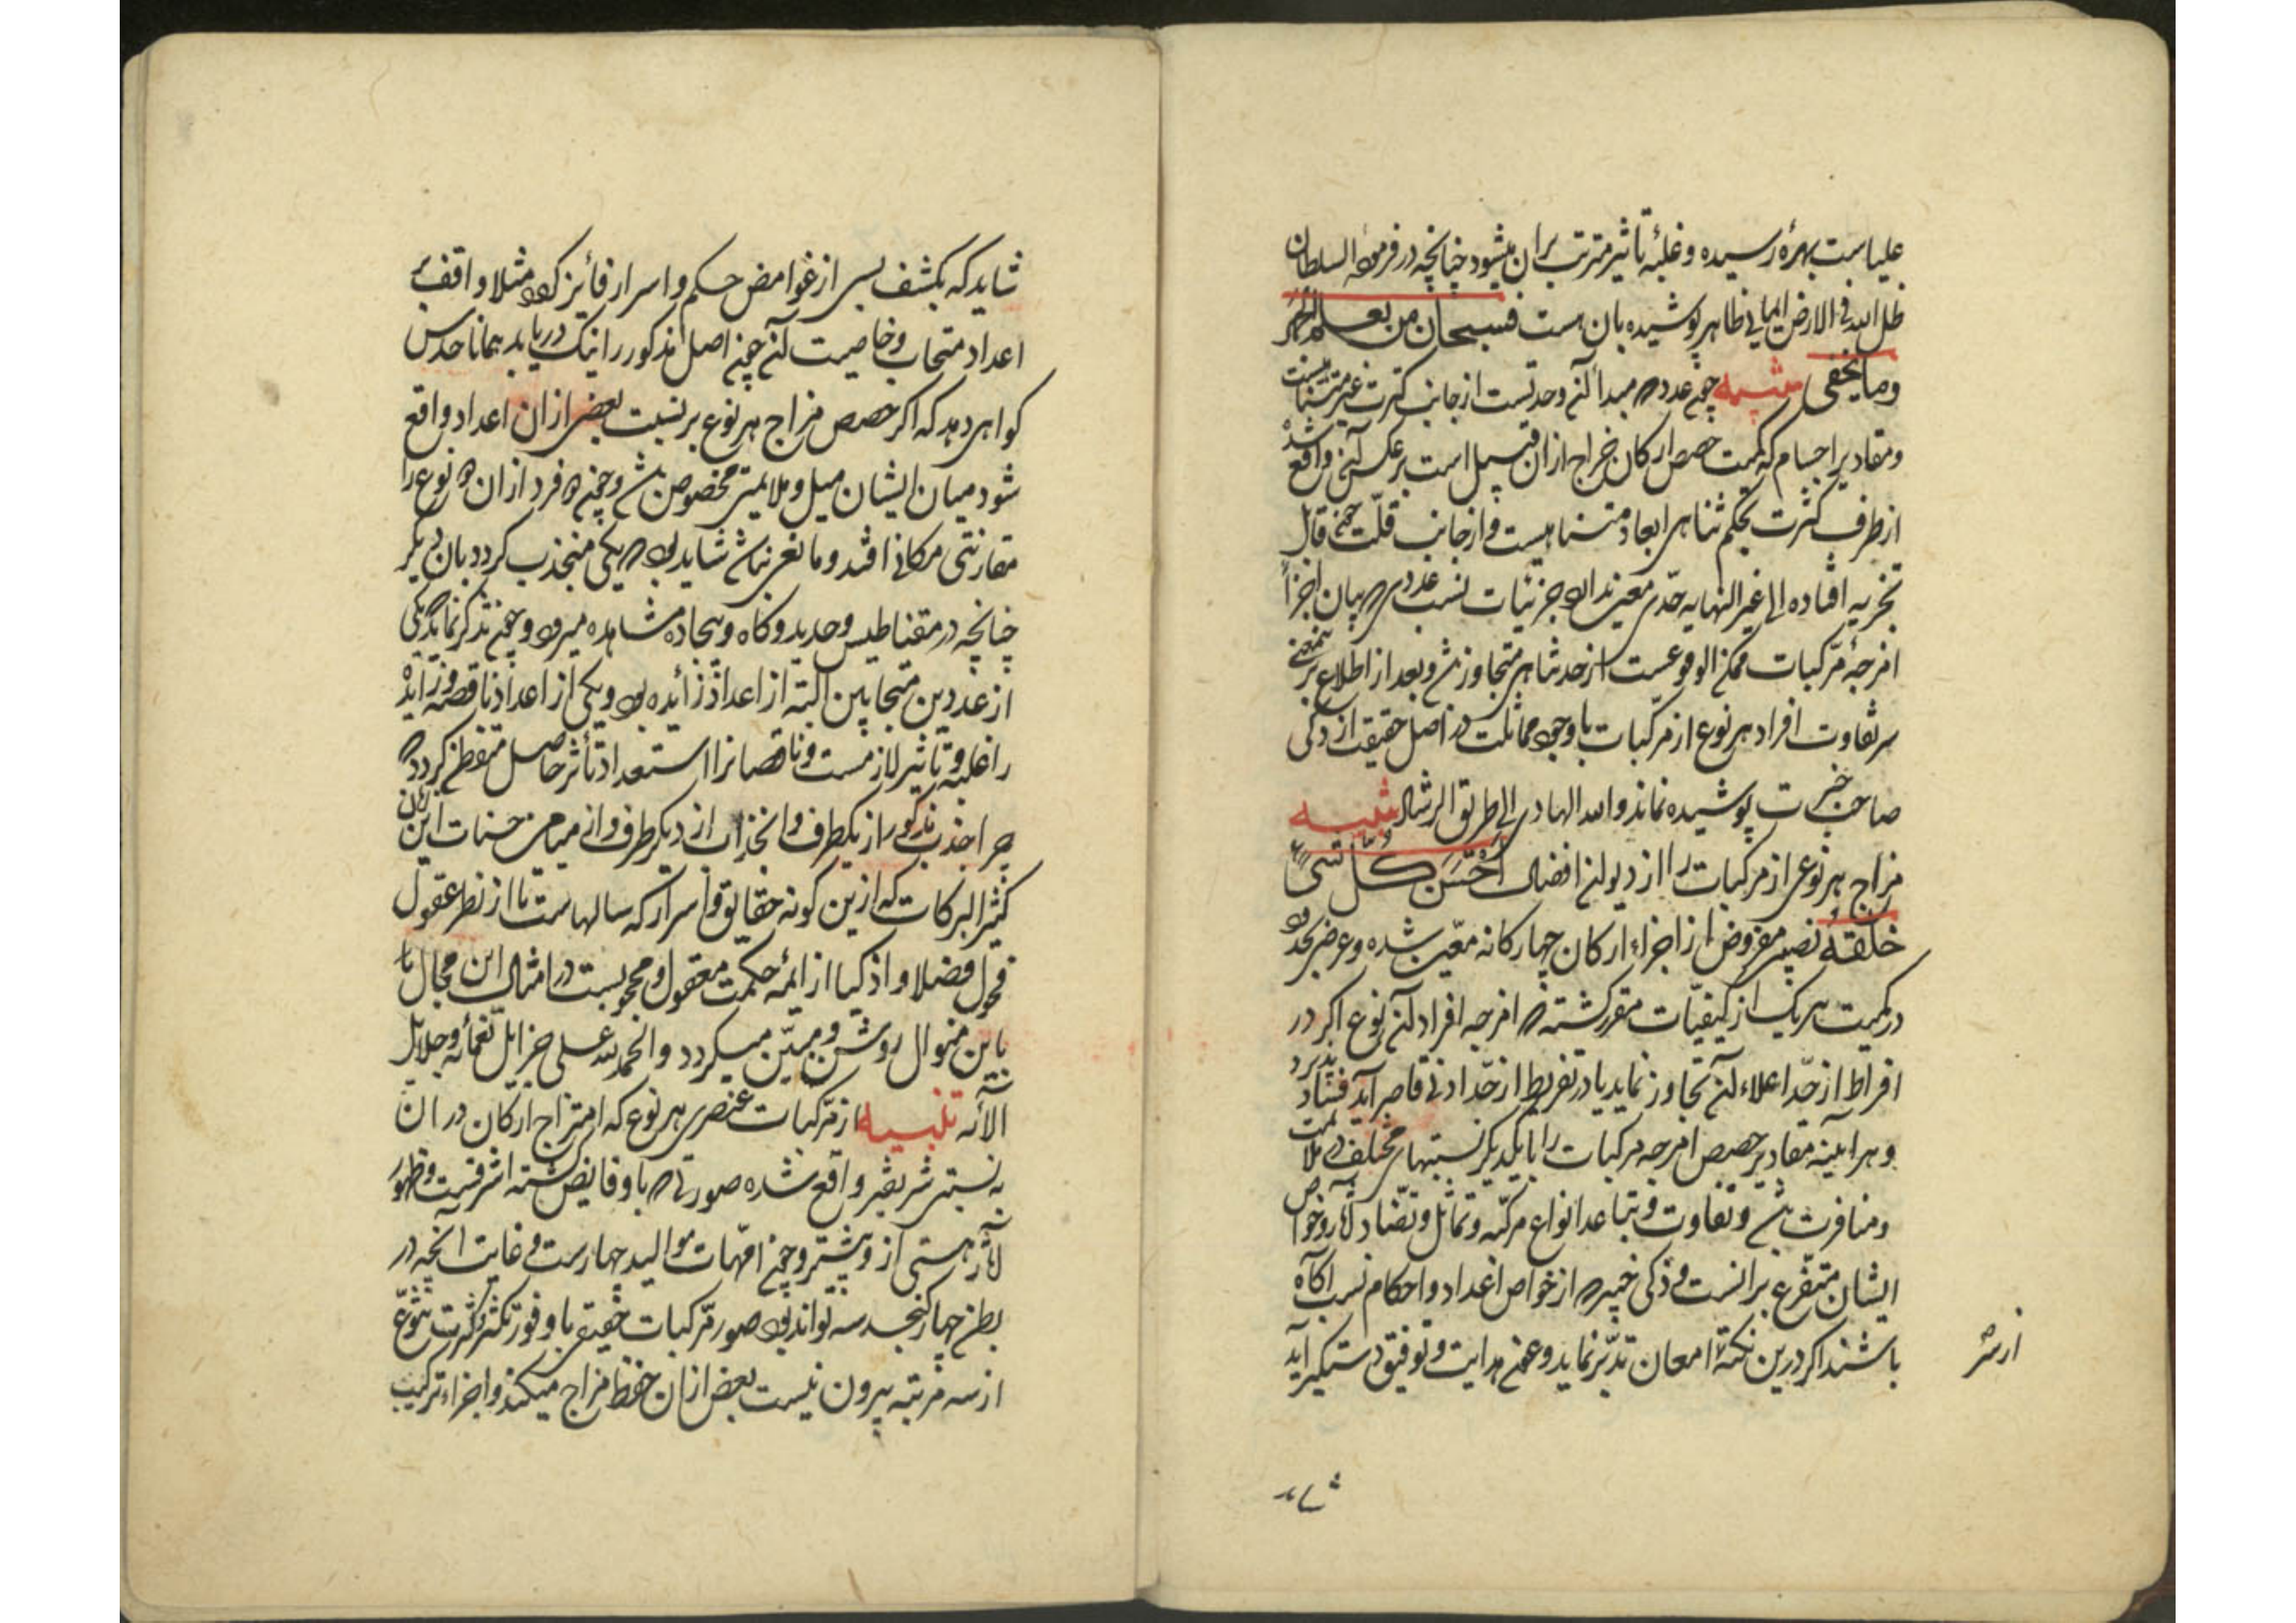 علیاست بهرهٔ رسیده و غلبهٔ تأثیر مترتب بران میشود چنانچه در فرموده السلطان
ظل الله فی الارض ایمایی ظاهر پوشیده بان هست فسبحان من یعلم الجهر
وما یخفی تنبیه چون عدد که مبدأ آن وحدتست از جانب کثرت غیر متناهیست
ومقادیر اجسام که کمیت حصص ارکان مزاج ازان قبیل است برعکس آن واقع شده
از طرف کثرت بحکم تناهی ابعاد متناهیست و از جانب قلّت چون قابل
تجزیه افتاده الی غیر النهایه حدّی معین ندارد جزئیات نسب عددی که میان اجزاء
امزجهٔ مرکبات ممکن الوقوعست از حد تناهی متجاوز باشد و بعد از اطلاع برین معنی
سر تفاوت افراد هر نوع از مرکبات با وجود مماثلت در اصل حقیقت از ذکی
صاحب خبرت پوشیده نماند والله الهادی الی طریق الرشاد تنبیه
مزاج هر نوعی از مرکبات را از دیوان افضال احسن کل شیء
خلقه نصیبی مفروض از اجزاء ارکان چهارگانه معین شده و عرضی محدود
در کمیت هریک از کیفیّات مقرر گشته که امزجه افراد آن نوع اگر در
افراط از حدّ اعلاء آن تجاوز نماید یا در تفریط از حدّ ادنی قاصر آید فساد پذیرد
و هر آینه مقادیر حصص امزجه مرکبات را با یکدیگر نسبتهای مختلف در ملایمت
ومنافرت باشد و تفاوت و تباعد انواع مرکبه و تماثل و تضاد آثار و خواص
ایشان متفرع برانست و ذکی خبیر که از خواص اعداد و احکام نسب آگاه
باشند اگر درین نکته امعان تدبّر نماید و عون هدایت و توفیق دستگیر آید
شاید
شاید که بکشف بسی از غوامض حکم و اسرار فائز گردد مثلا واقف بر
اعداد متحاب و خاصیت آن چون اصل مذکور را نیک دریابد همانا حدس
گواهی دهد که اگر حصص مزاج هر نوع بر نسبت بعضی ازان اعداد واقع
شود میان ایشان میل و ملایمتی مخصوص باشد و چون دو فرد ازان دو نوع را
مقارنتی مکانی افتد و مانعی نباشد شاید بود که یکی منجذب گردد بان دیگر
چنانچه در مقناطیس و حدید و کاه و بیجاده مشاهده میرود و چون تذکر نماید که یکی
از عددین متحابین البته از اعداد زائده بود و یکی از اعداد ناقصه و زایده
را غلبه و تأثیر لازمست و ناقصه را استعداد تأثر حاصل متفطن گردد که
چرا جذب مذکور از یکطرف و انجذاب از دیگر طرف و از میامن حسنات این زمان
کثیر البرکات که ازین گونه حقایق و اسرار که سالهاست تا از نظر عقول
فحول فضلا و اذکیا از ائمه حکمت معقول و محجوبست در امثال این مجال ما
باین منوال روشن و مبیّن میگردد والحمد لله علی جزایل نعمائه وجلایل
آلائه تنبیه از مرکبات عنصری هر نوع که امتزاج ارکان در ان
به نسبتی شریفتر واقع شده صورتی که باو فایض گشته اشرفست و ظهور
آثار هستی از و بیشتر و چون امّهات موالید چهارست و غایت آنچه در
بطن چهار گنجد سه تواند بود صور مرکبات حقیقی با وفور تکثر و کثرت تنوّع
از سه مرتبه بیرون نیست بعضی ازان حفظ مزاج میکند و اجزاء ترکیب